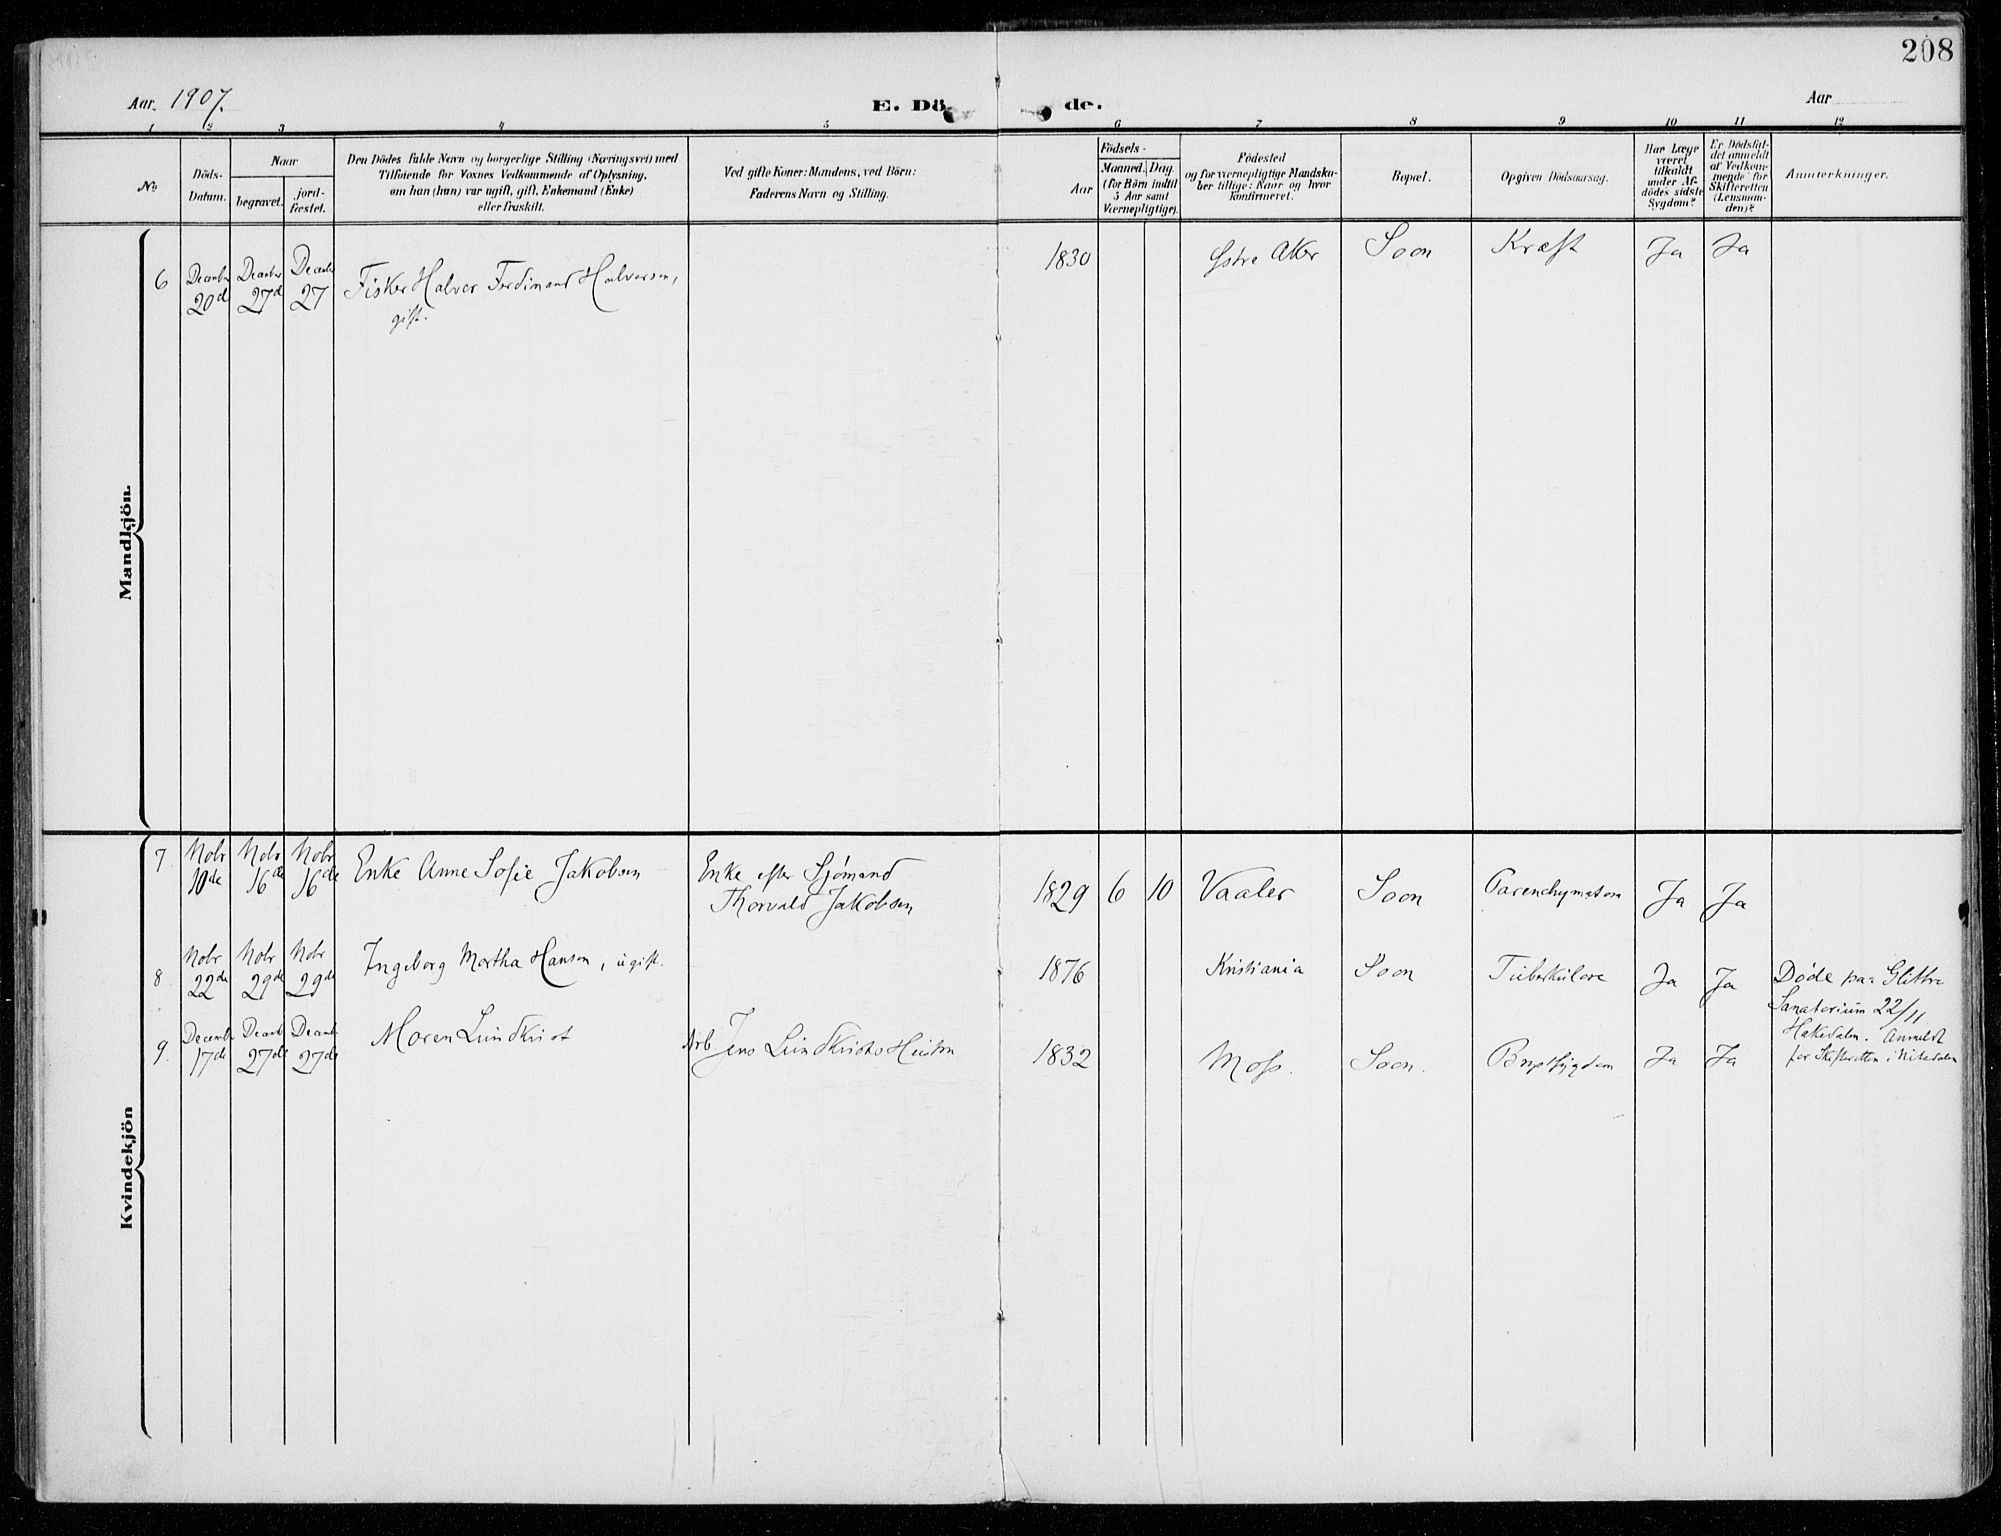 208
Aar 1907.
E. Dö
de.
Aar
1 2 3 4 5 6 7 8 9 10 11 12
No
Döds-
Datum.
Naar
begravet.
jord-
fæstet.
Den Dödes fulde Navn og borgerlige Stilling (Næringsvei) med
Tilföiende for Voxnes Vedkommende af Oplysning,
om han (hun) var ugift, gift, Enkemand (Enke)
eller fraskilt.
Ved gifte Koner: Mandens, ved Börn:
Faderens Navn og Stilling.
Födsels-
Aar
Maaned. Dag.
(for Börn indtil
5 Aar samt
Værnepligtige).
Födested
og for værnepligtige Mandska-
ber tillige: Naar og hvor
konfirmeret.
Bopæl.
Opgiven Dödsaarsag.
Har Læge
været
tilkaldt
under Af-
dödes sidste
Sygdom?
Er Dödsfal-
det anmeldt
af Vedkom-
mende for
Skifteretten
(Lensman-
den)?
Anmærkninger.
Mandkjön.
6 December 20de December 27de December 27 Fisker Halvor Ferdinand Halvorsen, 1830 Østre Aker Soon Kræft Ja Ja
gift.
Kvindekjön
7. Novbr 10de Novbr 16de Novbr 16de Enke Anne Sofie Jakobsen Enke efter Sjømand 1829 6 10 Vaaler Soon Ja Ja
Thorvald Jakobsen
8 Novbr 22de Novbr 29de Novbr 29de Ingeborg Martha Hansen, ugift. 1876 Kristiania Soon Tuberkulose Ja Ja Døde paa Glittre
Sanatorium 22/11
Hakedalen. Anmeldt
for Skifteretten i Nitedalen
9. December 17de December 27de December 27de Maren Lundkvist Arb. Jens Lundkvists Hustru 1832 Moss. Soon. Brystsygdom Ja Ja